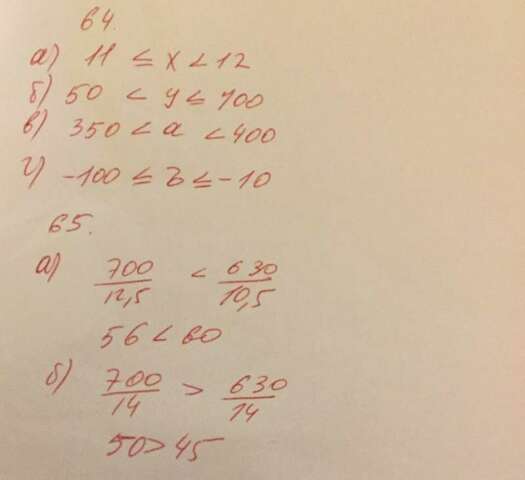 64.
а) 11 ≤ x < 12
б) 50 < y ≤ 100
в) 350 < a < 400
г) -100 ≤ b ≤ -10
65.
а) 700/12,5 < 630/10,5
56 < 60
б) 700/14 > 630/14
50 > 45